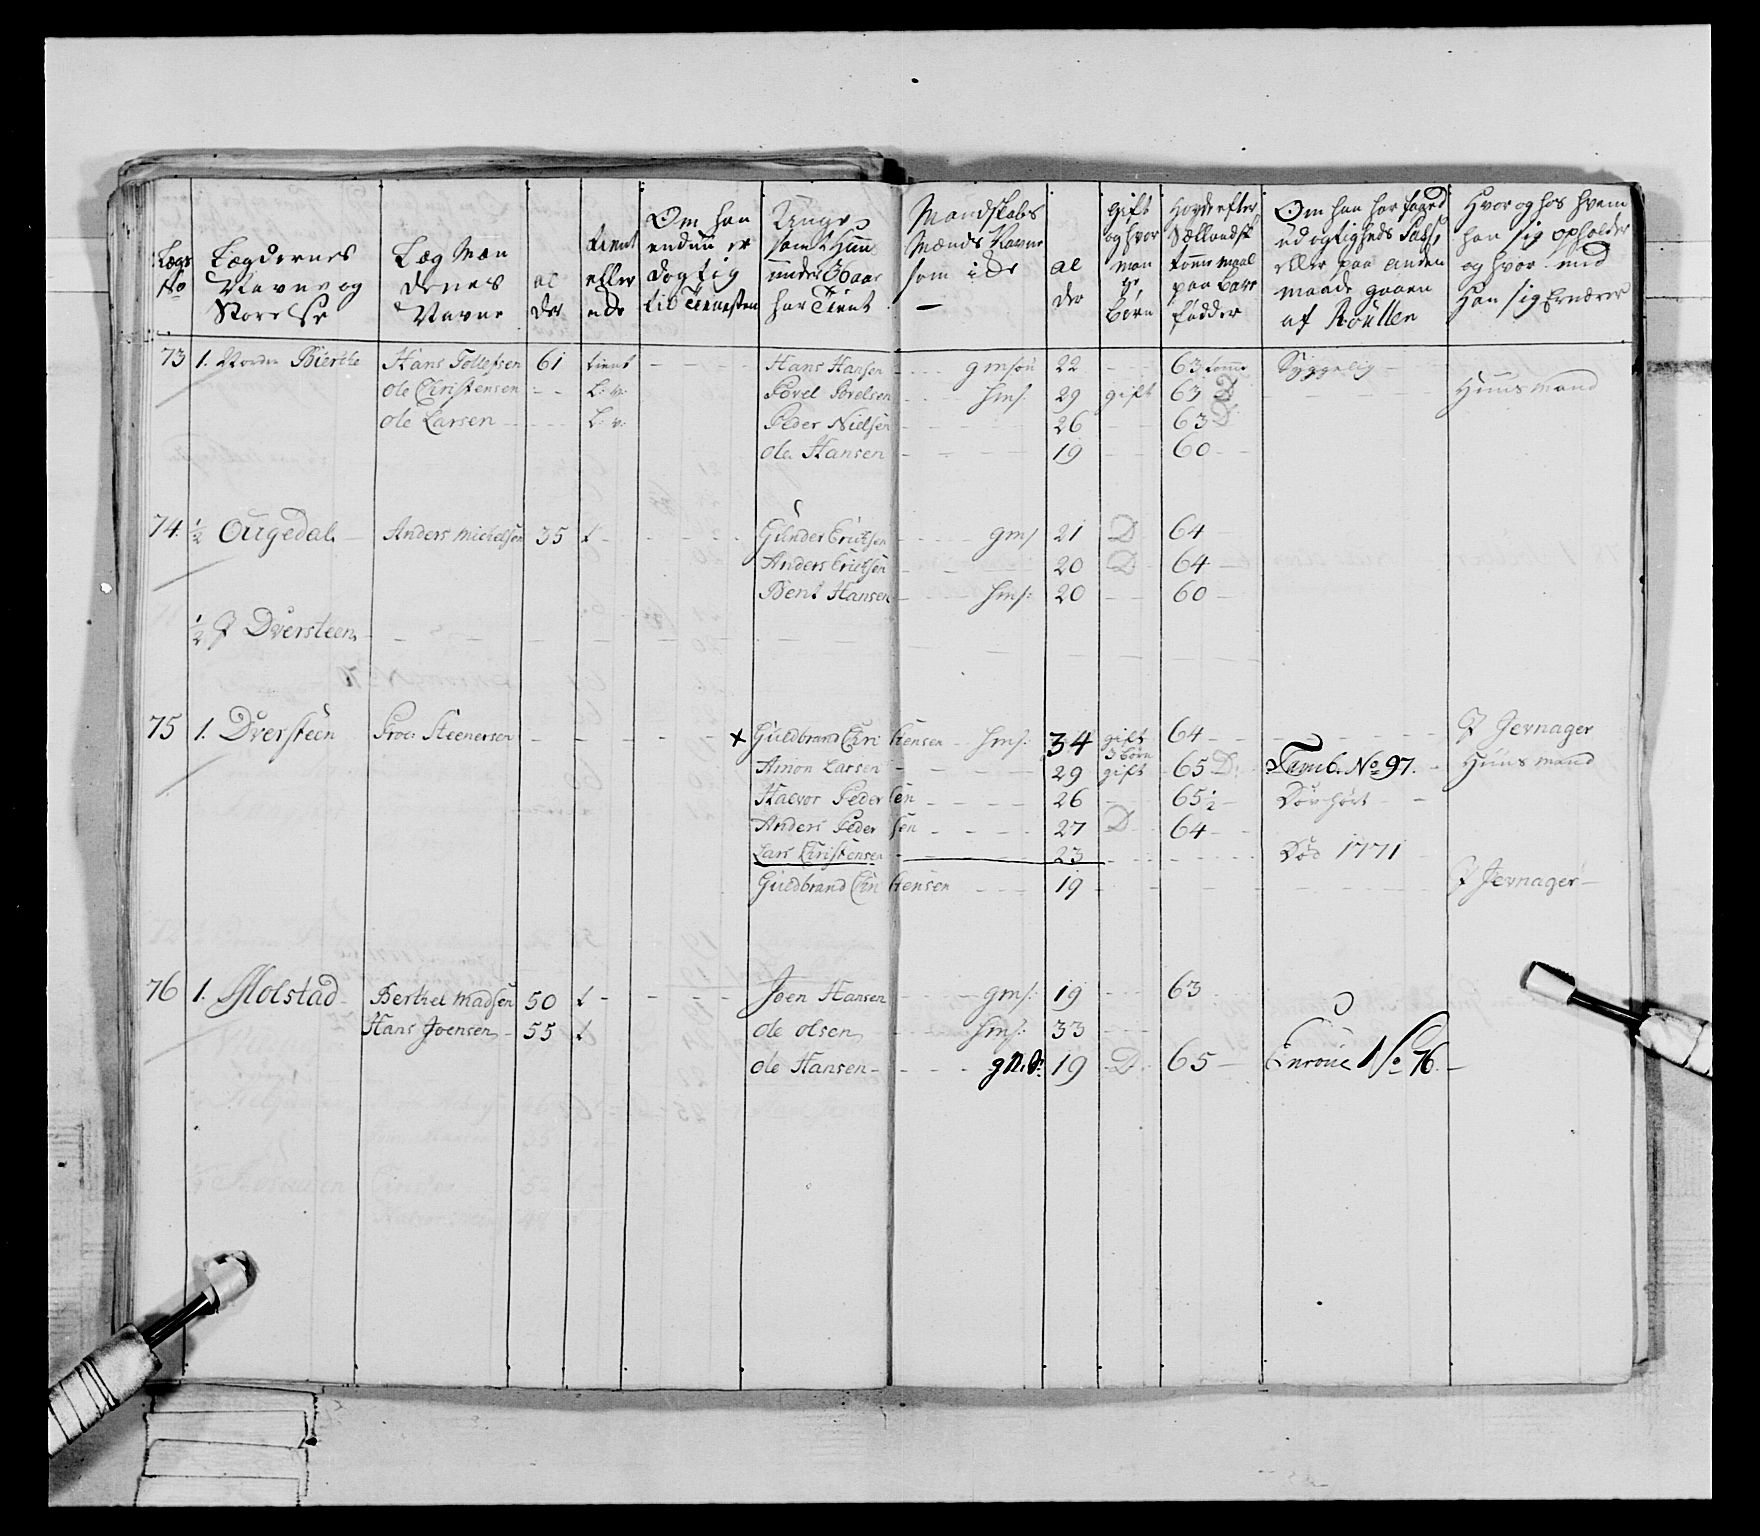 Lægs No
Lægdernes Navne og Størrelse
Læg Mændenes Navne
alder
tient eller ede
Om han endnu er dögtig til Tienesten
Unge samt Huus under 36 aar har Tient
Mandskabs Mænds Navne som i de
alder
gift og hvor mange Börn
Höyde efter Sællandsk tomme maal paa bare födder
Om han har faaed udögtigheds Pass eller paa anden maade gaaen af Roullen
Hvor og hos hvem han sig opholder og hvor med han sig Ernærer
73 1. Nordre Biertke Hans Tollefsen 61 tient - - - - Hans Hansen - - gmsøn 22 - - 63 tomme Syggelig -
Ole Christensen - - L: v: Povel Povelsen - - hms: 29 gift 63 D - - - - Huusmand
Ole Larsen - - - L: v: Peder Nielsen - - - - 26 - - 63 D
Ole Hansen - - - - 19 - - 60 - -
74. ½ Ougedal - Anders Michelsen 35 t - - - - Gunder Erichsen - - - gms 21 D 64
Anders Erichsen - - 20 D 64 -
Bent Hansen - hms: 20 - - 60 -
½ P Dversteen - - - -
75 1. Dversteen Proc: Steenersen - - - - x Guldbrand Christensen - - hms: 34 gift 3 børn 64 - - - - P Jevnager
Amon Larsen - - - - 29 gift - 65 D: Tamb. No 97. - Huusmand
Halvor Pedersen - - - - 26 - - 65½ - Døvhørt - -
Anders Pedersen - - - - 27 D 64 - -
Lars Christensen - - - - 23 - - - - Død 1771
Guldbrand Christensen - - - 19 - - - - P Jevnager -
76 1. Molstad - Berthel Madsen 50 t - - - - Joen Hansen - - - gms: 19 - - 63
Hans Joensen - 55 t Ole Olsen - - hms: 33 - - -
Ole Hansen - - - - gm. S: 19 D. 65 - Enroue No 76. -